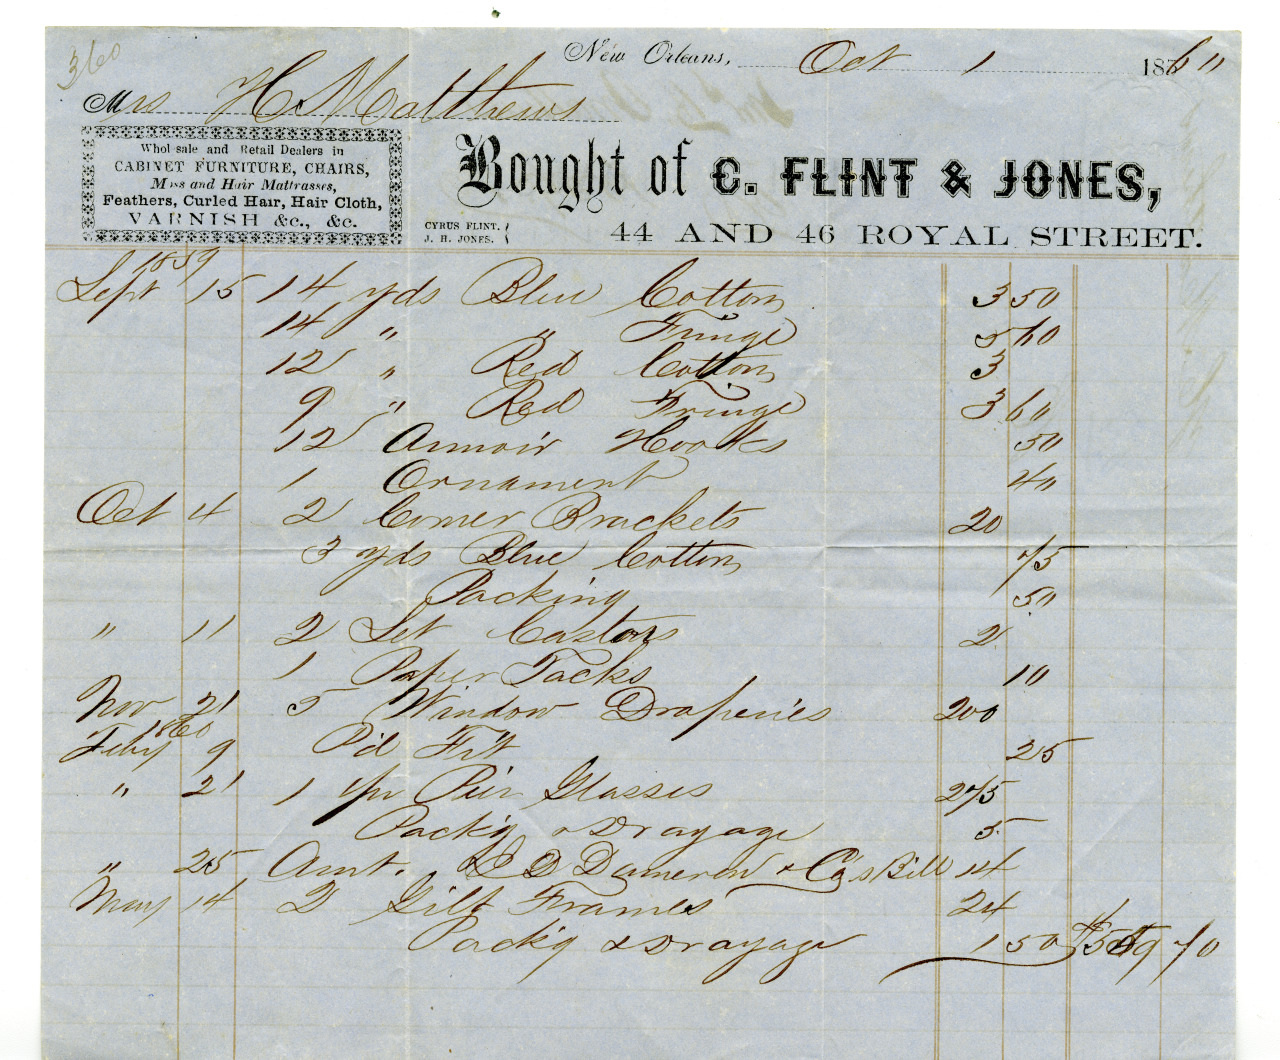 360
New Orleans, Oct 1 1860
Mrs H Matthews
Wholesale and Retail Dealers in
CABINET FURNITURE, CHAIRS,
Moss and Hair Mattrasses,
Feathers, Curled Hair, Hair Cloth,
VARNISH &c., &c.
Bought of C. FLINT & JONES,
CYRUS FLINT.
J. H. JONES.
44 AND 46 ROYAL STREET.
1859
Sept 15 14 yds Blue Cotton 3 50
14 " " Fringe 5 60
12 " Red Cotton 3
9 " Red Fringe 3 60
12 Armoir Hooks 50
1 Ornament 40
Oct 4 2 Corner Brackets 20
3 yds Blue Cotton 75
Packing 50
" 11 2 Set Castors 2
1 Paper Tacks 10
Nov 21 5 Window Draperies 200
1860
Feby 9 Pd Frt 25
" 21 1 pr Pier Glasses 275
Pack'g & Drayage 5
" 25 Amt. D D Dameron & Co's Bill 14
May 14 2 Gilt Frames 24
Pack'g & Drayage 1 50 $559 70